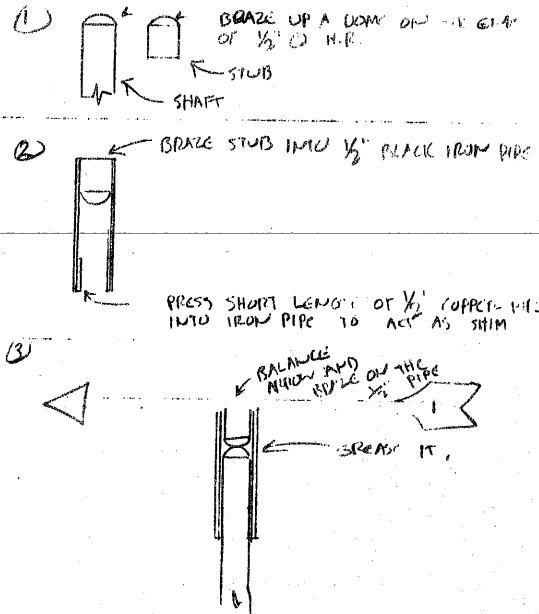 1
BRAZE UP A DOME ON
OF 1/2" H.R.
STUB
SHAFT
2
BRAZE STUB INTO 1/2" BLACK IRON PIPE
PRESS SHORT LENGTH OF 1/2"
INTO IRON PIPE TO ACT AS SHIM
3
BALANCE
ARROW AND
BRAZE ON THE
1/2" PIPE
GREASE IT.